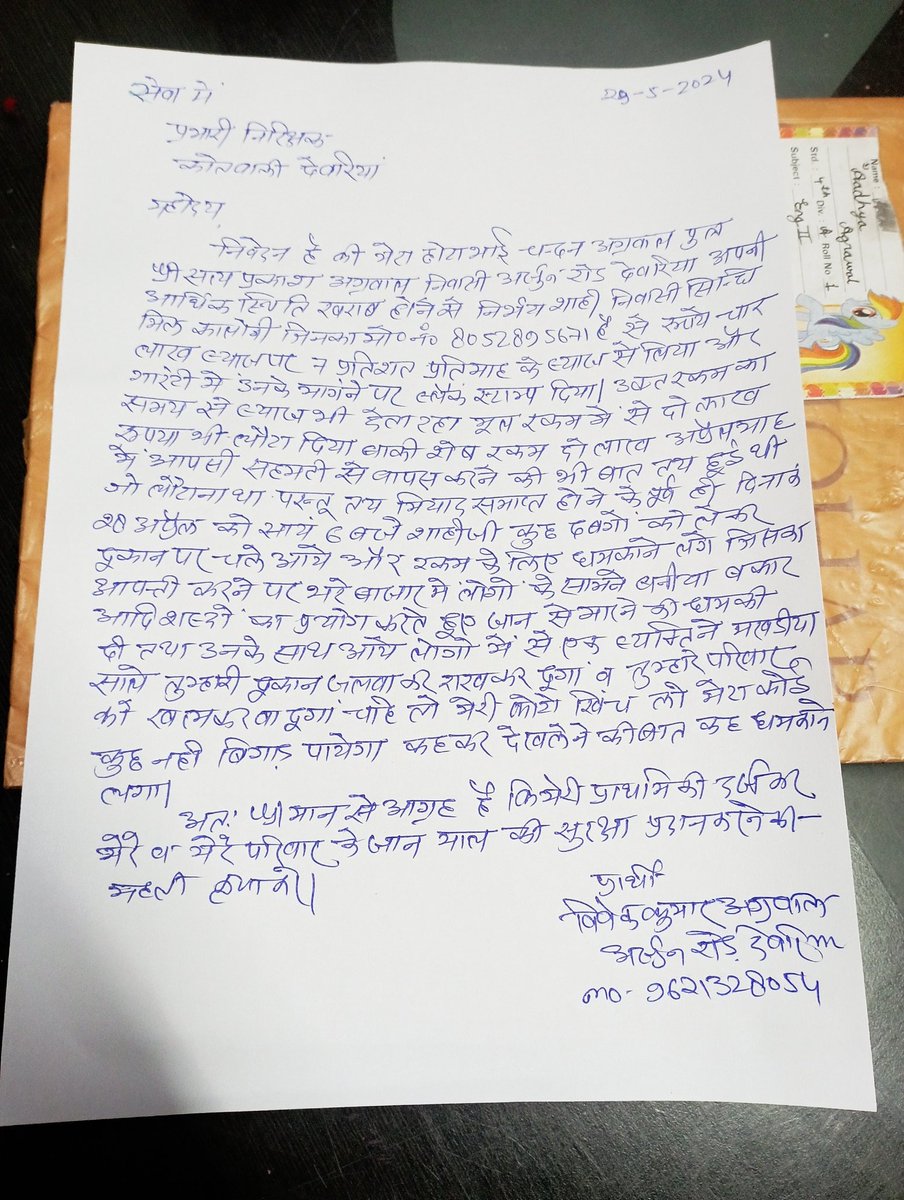 सेवा में
29-5-2024
प्रभारी निरिक्षक
कोतवाली देवरिया
महोदय
निवेदन है की मेरा छोटा भाई चन्दन अग्रवाल पुत्र
श्री सत्य प्रकाश अग्रवाल निवासी अर्जुन रोड देवरिया अपनी
आर्थिक स्थिति खराब होने से निर्भय शाही निवासी सिन्धि
मिल कालोनी जिनका मो० नं० 8052895671 है से रूपये चार
लाख ब्याज पर 7 प्रतिशत प्रतिमाह के ब्याज से लिया और
गारंटी में उनके मागंने पर ब्लैंक स्टाम्प दिया। उक्त रकम का
समय से ब्याज भी देता रहा मूल रकम में से दो लाख
रूपया भी लौटा दिया बाकी शेष रकम दो लाख अप्रैल माह
में आपसी सहमती से वापस करने की भी बात तय हूई थी
जो लौटाना था परन्तू तय मियाद समाप्त होने के पूर्व ही दिनाकं
28 अप्रैल को सायं 6 बजे शाहीजी कुछ दबगों को लेकर
दूकान पर चले आये और रकम के लिए धमकाने लगे जिसका
आपत्ती करने पर भरे बाजार में लोगों के सामने बनीया बकार
आदि शब्दों का प्रयोग करते हूए जान से मारने की धमकी
दी तथा उनके साथ आये लोगों में से एक व्यक्ति ने
साले तुम्हारी दूकान जलवा कर राख कर दूगां व तुम्हारे परिवार
को खत्म करवा दूगां चाहे तो मेरी फोटो खिंच लो मेरा कोई
कुछ नही बिगाड़ पायेगा कहकर देखलेने की बात कह धमकाने
लगा।
अतः श्रीमान से आग्रह है कि मेरी प्राथमिकी दर्ज कर
मेरे व मेरे परिवार के जान माल की सुरक्षा प्रदान करने की-
महती कृपा करें।
प्रार्थी
विवेक कुमार अग्रवाल
अर्जुन रोड़ देवरिया
mo- 9621328054
Name: Aadhya Agrawal
Std.: 4th Div.: A Roll No 1
Subject: Eng II